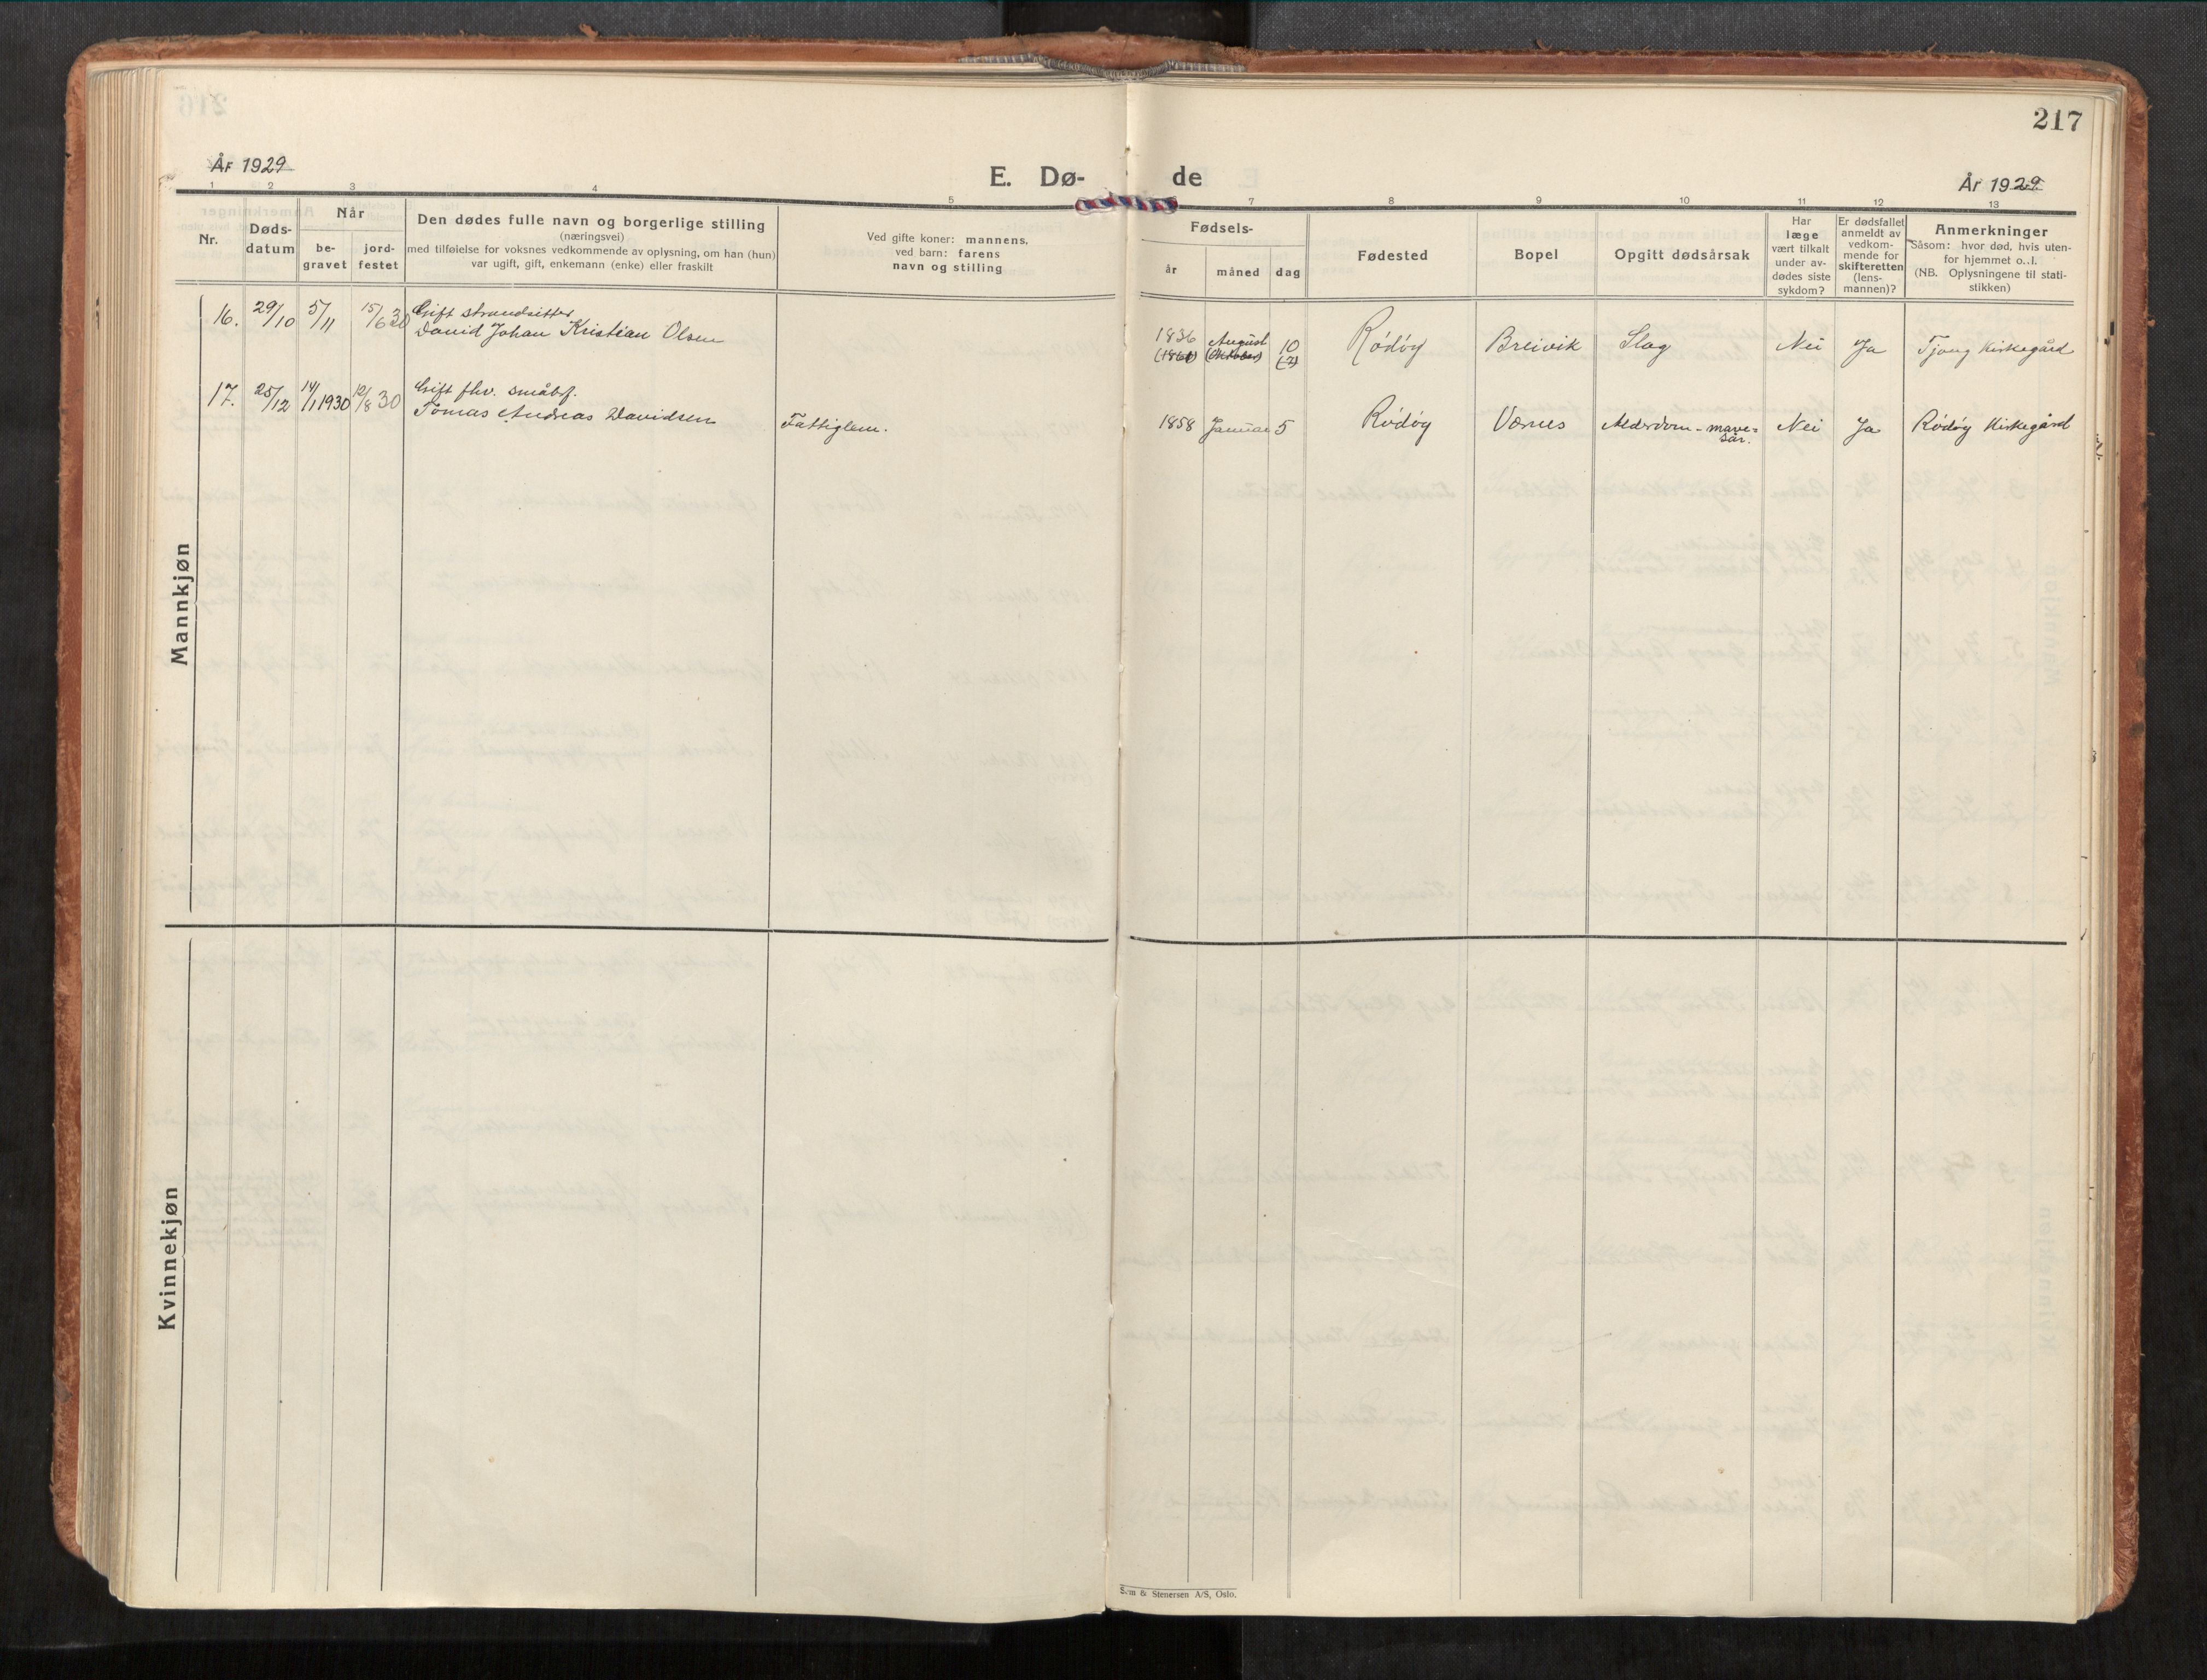 217
År 1929
E. Dø- de
År 1929
1 2 3 4 5 7 8 9 10 11 12 13
Nr.
Døds-
datum
Når
be-
gravet
jord-
festet
Den dødes fulle navn og borgerlige stilling
(næringsvei)
med tilføielse for voksnes vedkommende av oplysning, om han (hun)
var ugift, gift, enkemann (enke) eller fraskilt
Ved gifte koner: mannens,
ved barn: farens
navn og stilling
Fødsels-
år
måned
dag
Fødested
Bopel
Opgitt dødsårsak
Har
læge
vært tilkalt
under av-
dødes siste
sykdom?
Er dødsfallet
anmeldt av
vedkom-
mende for
skifteretten
(lens-
mannen)?
Anmerkninger
Såsom: hvor død, hvis uten-
for hjemmet o. l.
(NB. Oplysningene til stati-
stikken)
Mannkjøn
16. 29/10 5/11 15/6 30 Gift strandsitter
David Johan Kristian Olsen
1836 August 10 Rødøy Breivik Slag Nei Ja Tjong Kirkegård
(1861) (Oktober) (7)
17. 25/12 14/1 1930 12/8 30 Gift fhv. småbr.
Tomas Andreas Davidsen Fattiglem. 1858 Januar 5 Rødøy Værnes Alderdom - mave=
sår. Nei Ja Rødøy Kirkegård
Kvinnekjøn
Sem & Stenersen A/S, Oslo.